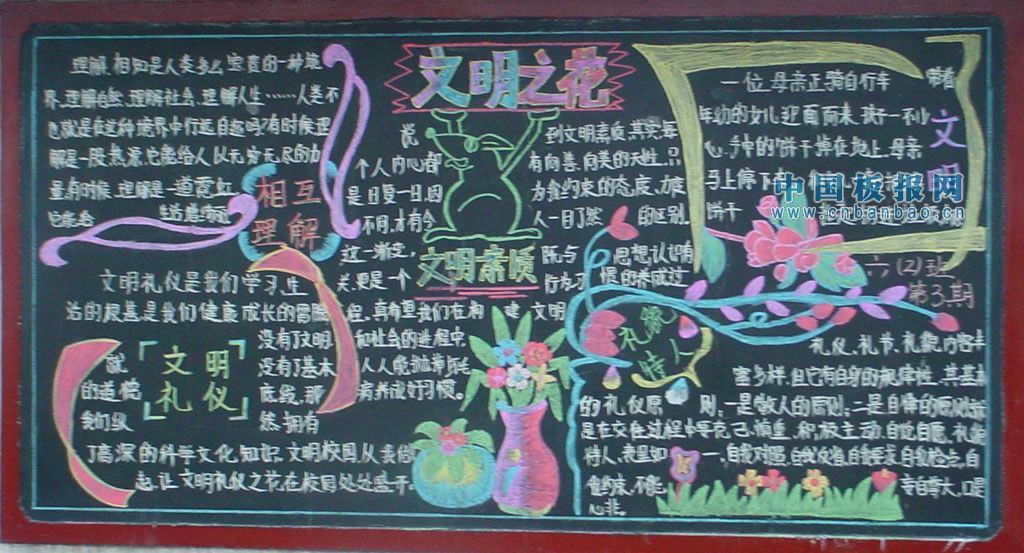 文明之花
理解、相知是人类多么宝贵的一种境
界,理解自然,理解社会,理解人生……人类不
也就是在这种境界中行远自
吗?有时候理
解是一股热源,它能给人以无穷无尽的力
量,有时候,理解是一道霓虹
相互
理解
说
到文明素质,其实每
个人内心都
有向善、向美的天性,只
是日复一日,因
为
约束的态度、力度
不同,才有今
人一目了然
的区别。
这一渐变,
既与
思想认识有
关,更是一个
行为习
惯的养成过
程,真希望我们在构
建
文明
和社会的进程中,
人人能抛弃陋
病,养成好习惯。
文明素质
一位母亲正骑自行车
带着
年幼的女儿迎面而来,孩子一不小
心,手中的饼干掉在地上,母亲
马上停下
饼干
文
明
中国板报网
www.cnbanbao.cn
六(2)班
第3期
文明礼仪是我们学习、生
活的根基,是我们健康成长的臂膀
没有了文明
就
没有了基本
的道德
底线,那
我们纵
然拥有
了高深的科学文化知识
文明校园,从我做
起,让文明礼仪之花在校园处处盛开。
文明
礼仪
礼貌
待人
礼仪、礼节、礼貌内容丰
富多样,但它有自身的规律性,其基本
的礼仪原
则:一是敬人的原则;二是自律的原则,就
是在交往过程中要克己、慎重、积极主动、自觉自愿、礼貌
待人、表里如
一,自我对照,自我反省,自我要求,自我检点,自
我约束,不能
妄自尊大,口是
心非。